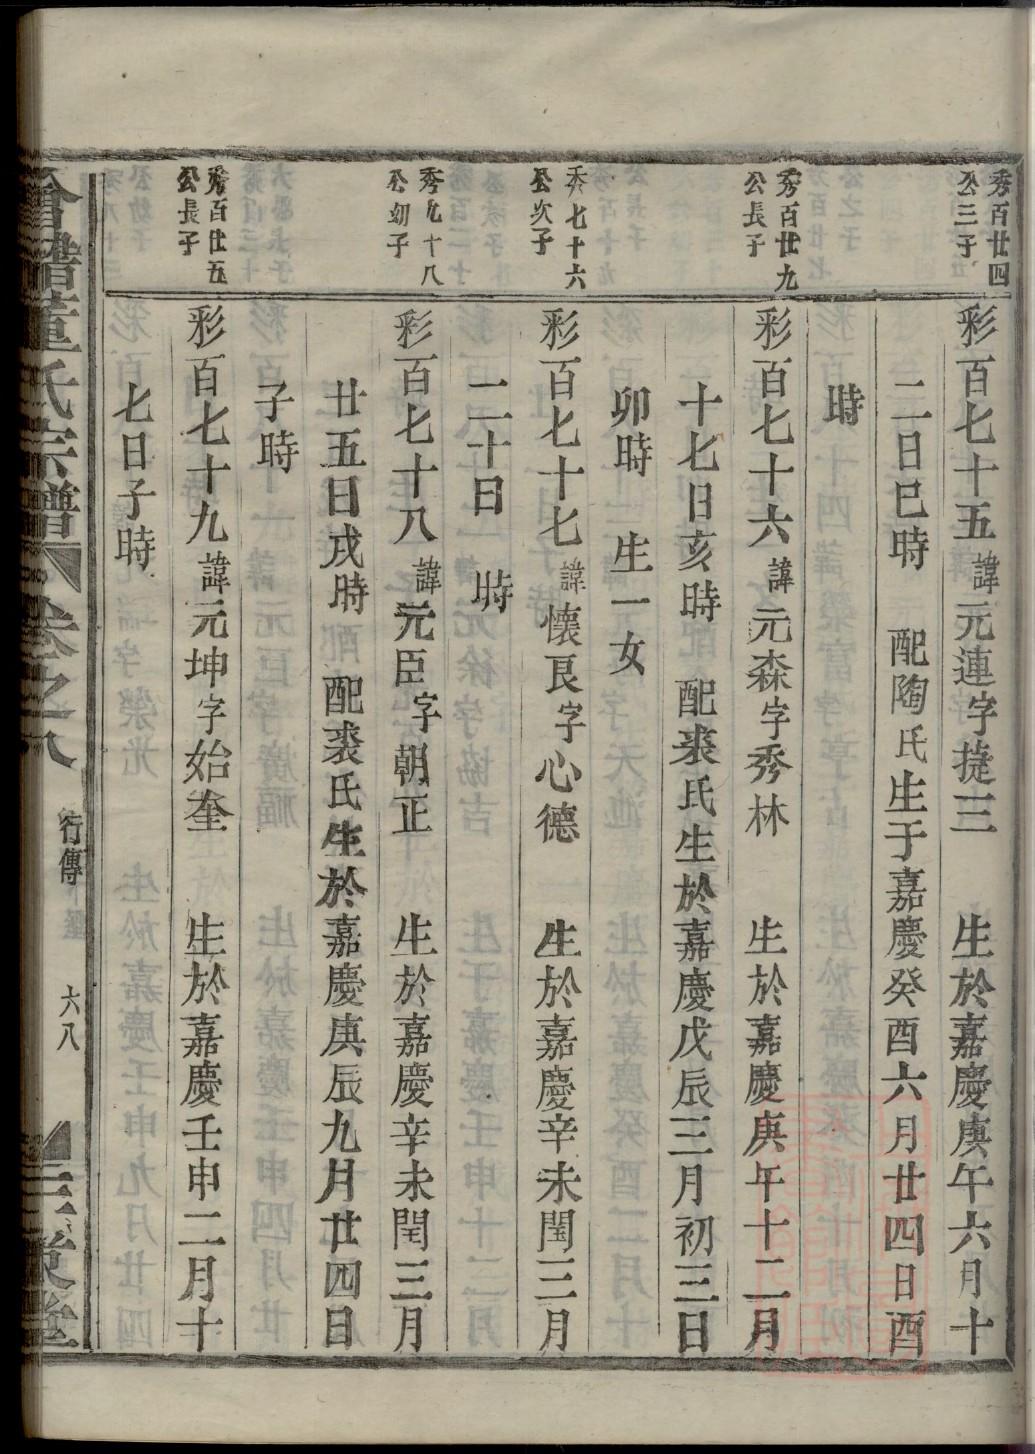 秀百廿四
公三子
彩百七十五諱元連字㨗三 生於嘉慶庚午六月十
二日巳時 配陶氏生于嘉慶癸酉六月廿四日酉
時
秀百廿九
公長子
彩百七十六諱元森字秀林 生於嘉慶庚午十二月
十七日亥時 配裘氏生於嘉慶戊辰三月初三日
卯時 生一女
秀七十六
公次子
彩百七十七諱懷艮字心德 生於嘉慶辛未閏三月
二十日 時
秀九十八
公幼子
彩百七十八諱元臣字朝正 生於嘉慶辛未閏三月
廿五日戌時 配裘氏生於嘉慶庚辰九月廿四日
子時
秀百廿五
公長子
彩百七十九諱元坤字始奎 生於嘉慶壬申二月十
七日子時
董氏宗譜 卷之八 行傳 六八